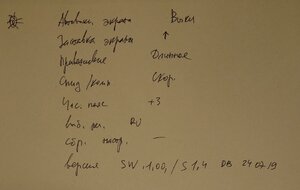 Активн. экрана Выкл
Заставка экрана ↑
Приветствие Длинное
Скор.
Час. пояс +3
выб. яз. RU
сбр. настр. —
версия SW 1.00, / S 1,4 DB 24 07 19